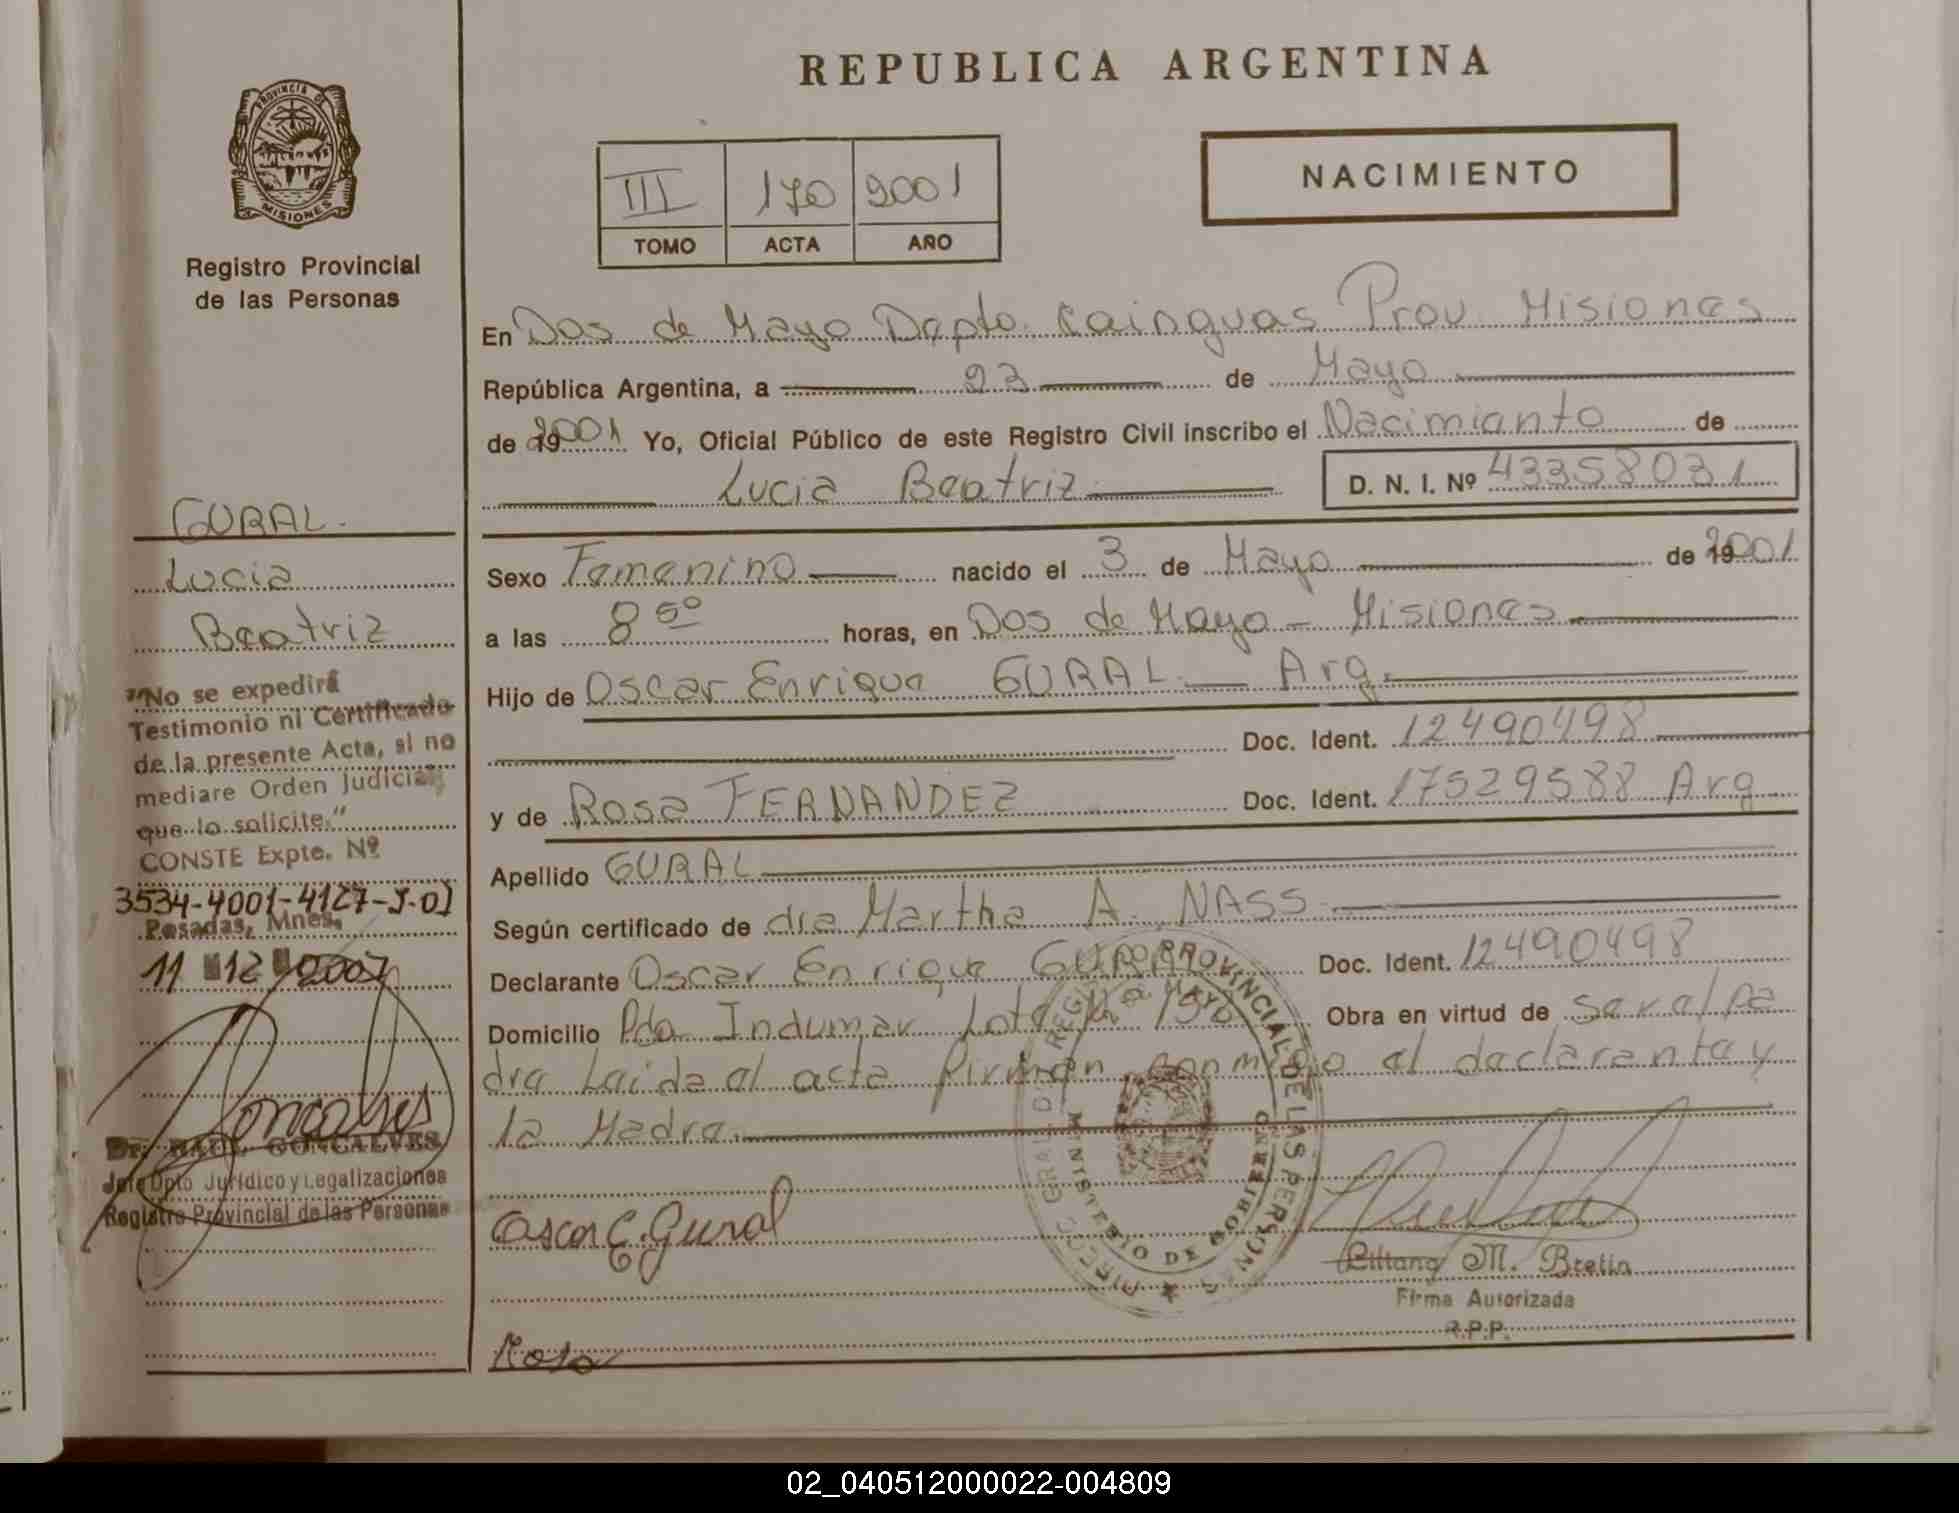 REPUBLICA ARGENTINA
PROVINCIA DE
MISIONES
Registro Provincial
de las Personas
III 170 2001
TOMO ACTA AÑO
NACIMIENTO
En Dos de Mayo Dapto. Cainguas Prov. Misiones
República Argentina, a 23 de Mayo
de 2001 Yo, Oficial Público de este Registro Civil inscribo el Nacimianto de
Lucia Beatriz D. N. I. Nº 43358031
GURAL.
Lucia
Beatriz
Sexo Femenino nacido el 3 de Mayo de 2001
a las 8 50 horas, en Dos de Mayo - Misiones
Hijo de Oscar Enrique GURAL. Arg.
Doc. Ident. 12490498
y de Rosa FERNANDEZ Doc. Ident. 17529588 Arg
Apellido GURAL
Según certificado de dra Martha A. NASS.
Declarante Oscar Enrique GURAL Doc. Ident. 12490498
Domicilio Pdo. Indumar Lote 198 Obra en virtud de ser el pa
dre Leida el acta firman conmigo el declarante y
la Madre.
"No se expedirá
Testimonio ni Certificado
de la presente Acta, si no
mediare Orden Judicial
que lo solicite."
CONSTE Expte. Nº
3534-4001-4127-J-07
Posadas, Mnes,
11 12 2007
Goncalves
Dr. RAUL GONCALVES
Jefe Dpto Jurídico y Legalizaciones
Registro Provincial de las Personas
Oscar E. Gural
Rosa
PROVINCIAL DE LAS PERSONAS
MINISTERIO DE GOBIERNO
M. Brelin
Firma Autorizada
R.P.P.
02_040512000022-004809